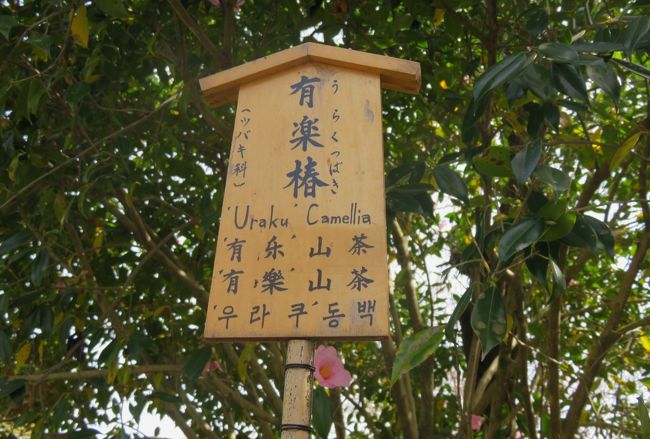 有楽椿
うらくつばき
(ツバキ科)
'Uraku' Camellia
'有乐'山茶
'有樂'山茶
'우라쿠'동백